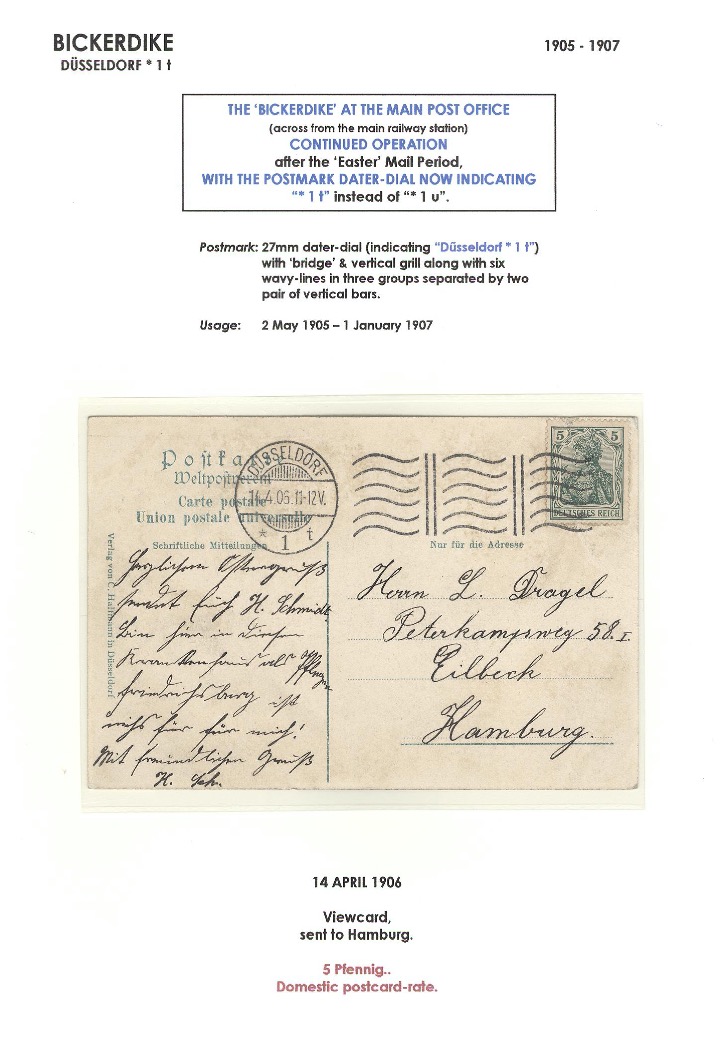 BICKERDIKE
DÜSSELDORF * 1 t
1905 - 1907
THE ‘BICKERDIKE’ AT THE MAIN POST OFFICE
(across from the main railway station)
CONTINUED OPERATION
after the ‘Easter’ Mail Period,
WITH THE POSTMARK DATER-DIAL NOW INDICATING
“* 1 t” instead of “* 1 u”.
Postmark: 27mm dater-dial (indicating “Düsseldorf * 1 t”)
with ‘bridge’ & vertical grill along with six
wavy-lines in three groups separated by two
pair of vertical bars.
Usage: 2 May 1905 – 1 January 1907
Postkarte
Weltpostverein
Carte postale
Union postale universelle
DÜSSELDORF
14.4.06.11-12V.
* 1 t
5 5
DEUTSCHES REICH
Schriftliche Mitteilungen
Nur für die Adresse
Verlag von C. Halffmann in Düsseldorf
Herzlichen Ostergruß
sendet Euch H. Schmidt.
Bin hier in diesem
Krankenhaus als Pfleger
Friedrichsberg ist
nichs für für mich!
Mit freundlichen Gruß
H. Sch.
Herrn L. Dragel
Peterkampsweg 58.I
Eilbeck
Hamburg.
14 APRIL 1906
Viewcard,
sent to Hamburg.
5 Pfennig..
Domestic postcard-rate.